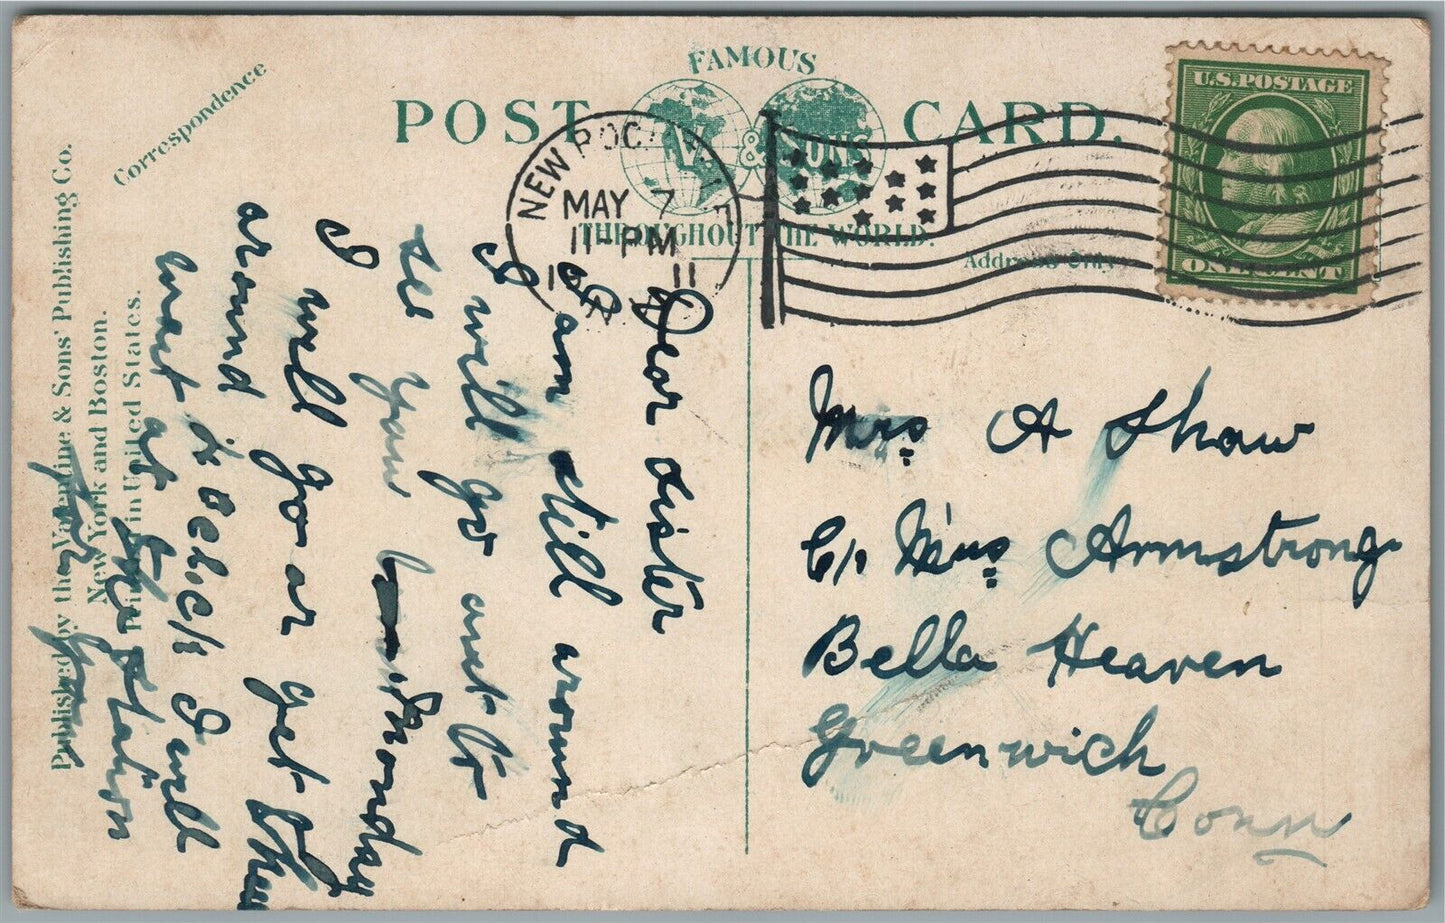 FAMOUS
POST CARD.
V. & SONS
THROUGHOUT THE WORLD.
Correspondence
Address Only.
Published by the Valentine & Sons' Publishing Co.
New York and Boston.
Printed in United States.
NEW ROCHELLE
MAY 7
11-PM
1911
N.Y.
U.S. POSTAGE
ONE CENT
Dear Sister
I am still around
I will go out to
see you Monday
I will go or get
around I will
meet at the station
Mrs A Shaw
C/o Mrs Armstrong
Bella Heaven
Greenwich
Conn